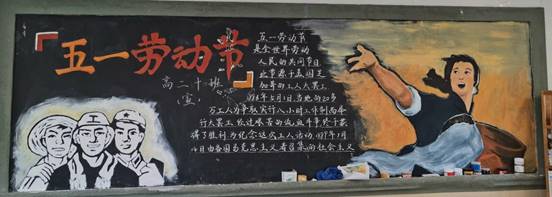 五一劳动节
高二十班
(宣)
五一劳动节
是全世界劳动
人民的共同节日
此节源于美国芝
加哥的工人大罢工
年5月1日,当地的20多
万工人为争取实行八小时工作制而举
行大罢工,经过艰苦的流血斗争终于获
得了胜利,为纪念这次工人运动 年7月
14日由各国马克思主义者召集的社会主义